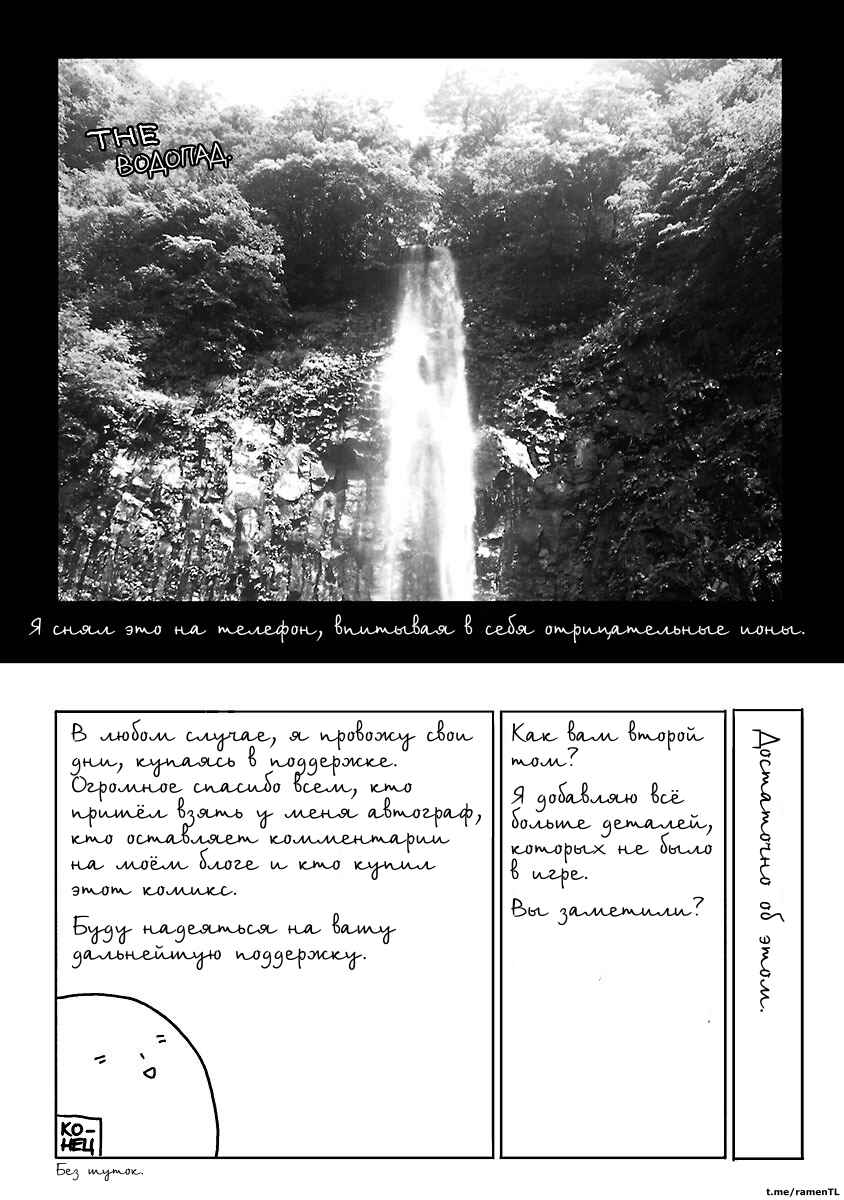 THE
ВОДОПАД.
Я снял это на телефон, впитывая в себя отрицательные ионы.
Достаточно об этом.
Как вам второй
том?
Я добавляю всё
больше деталей,
которых не было
в игре.
Вы заметили?
В любом случае, я провожу свои
дни, купаясь в поддержке.
Огромное спасибо всем, кто
пришёл взять у меня автограф,
кто оставляет комментарии
на моём блоге и кто купил
этот комикс.
Буду надеяться на вашу
дальнейшую поддержку.
КО-
НЕЦ
Без шуток.
t.me/ramenTL